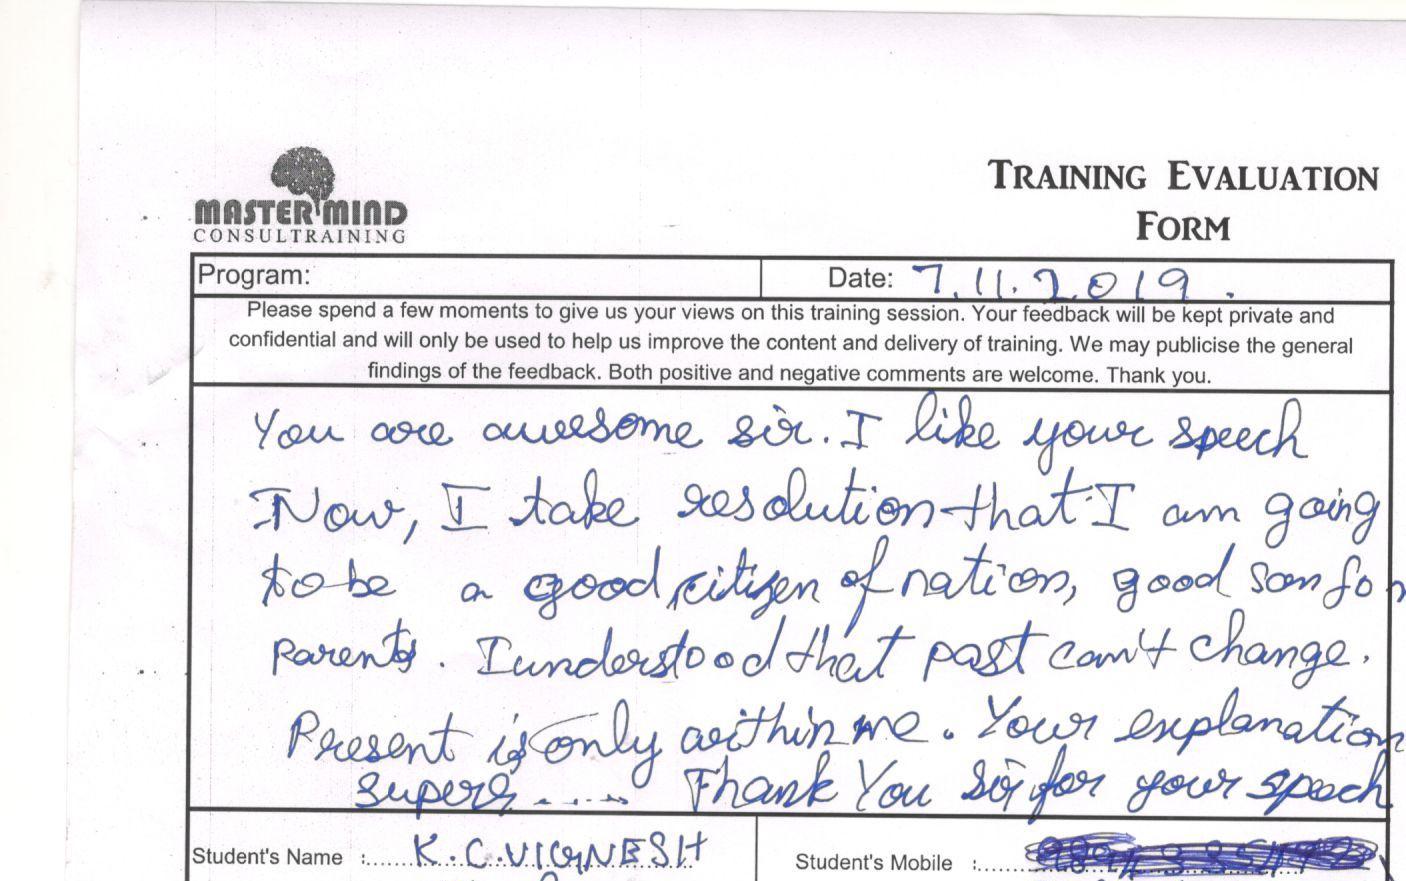 MASTER MIND
CONSULTRAINING
TRAINING EVALUATION
FORM
Program:
Date: 7.11.2019.
Please spend a few moments to give us your views on this training session. Your feedback will be kept private and
confidential and will only be used to help us improve the content and delivery of training. We may publicise the general
findings of the feedback. Both positive and negative comments are welcome. Thank you.
You are awesome sir. I like your speech
Now, I take resolution that I am going
to be a good citizen of nation, good son for
parents. I understood that past can't change.
Present is only within me. Your explanation
superb..... Thank You sir for your speech
Student's Name : K.C.VIGNESH
Student's Mobile :